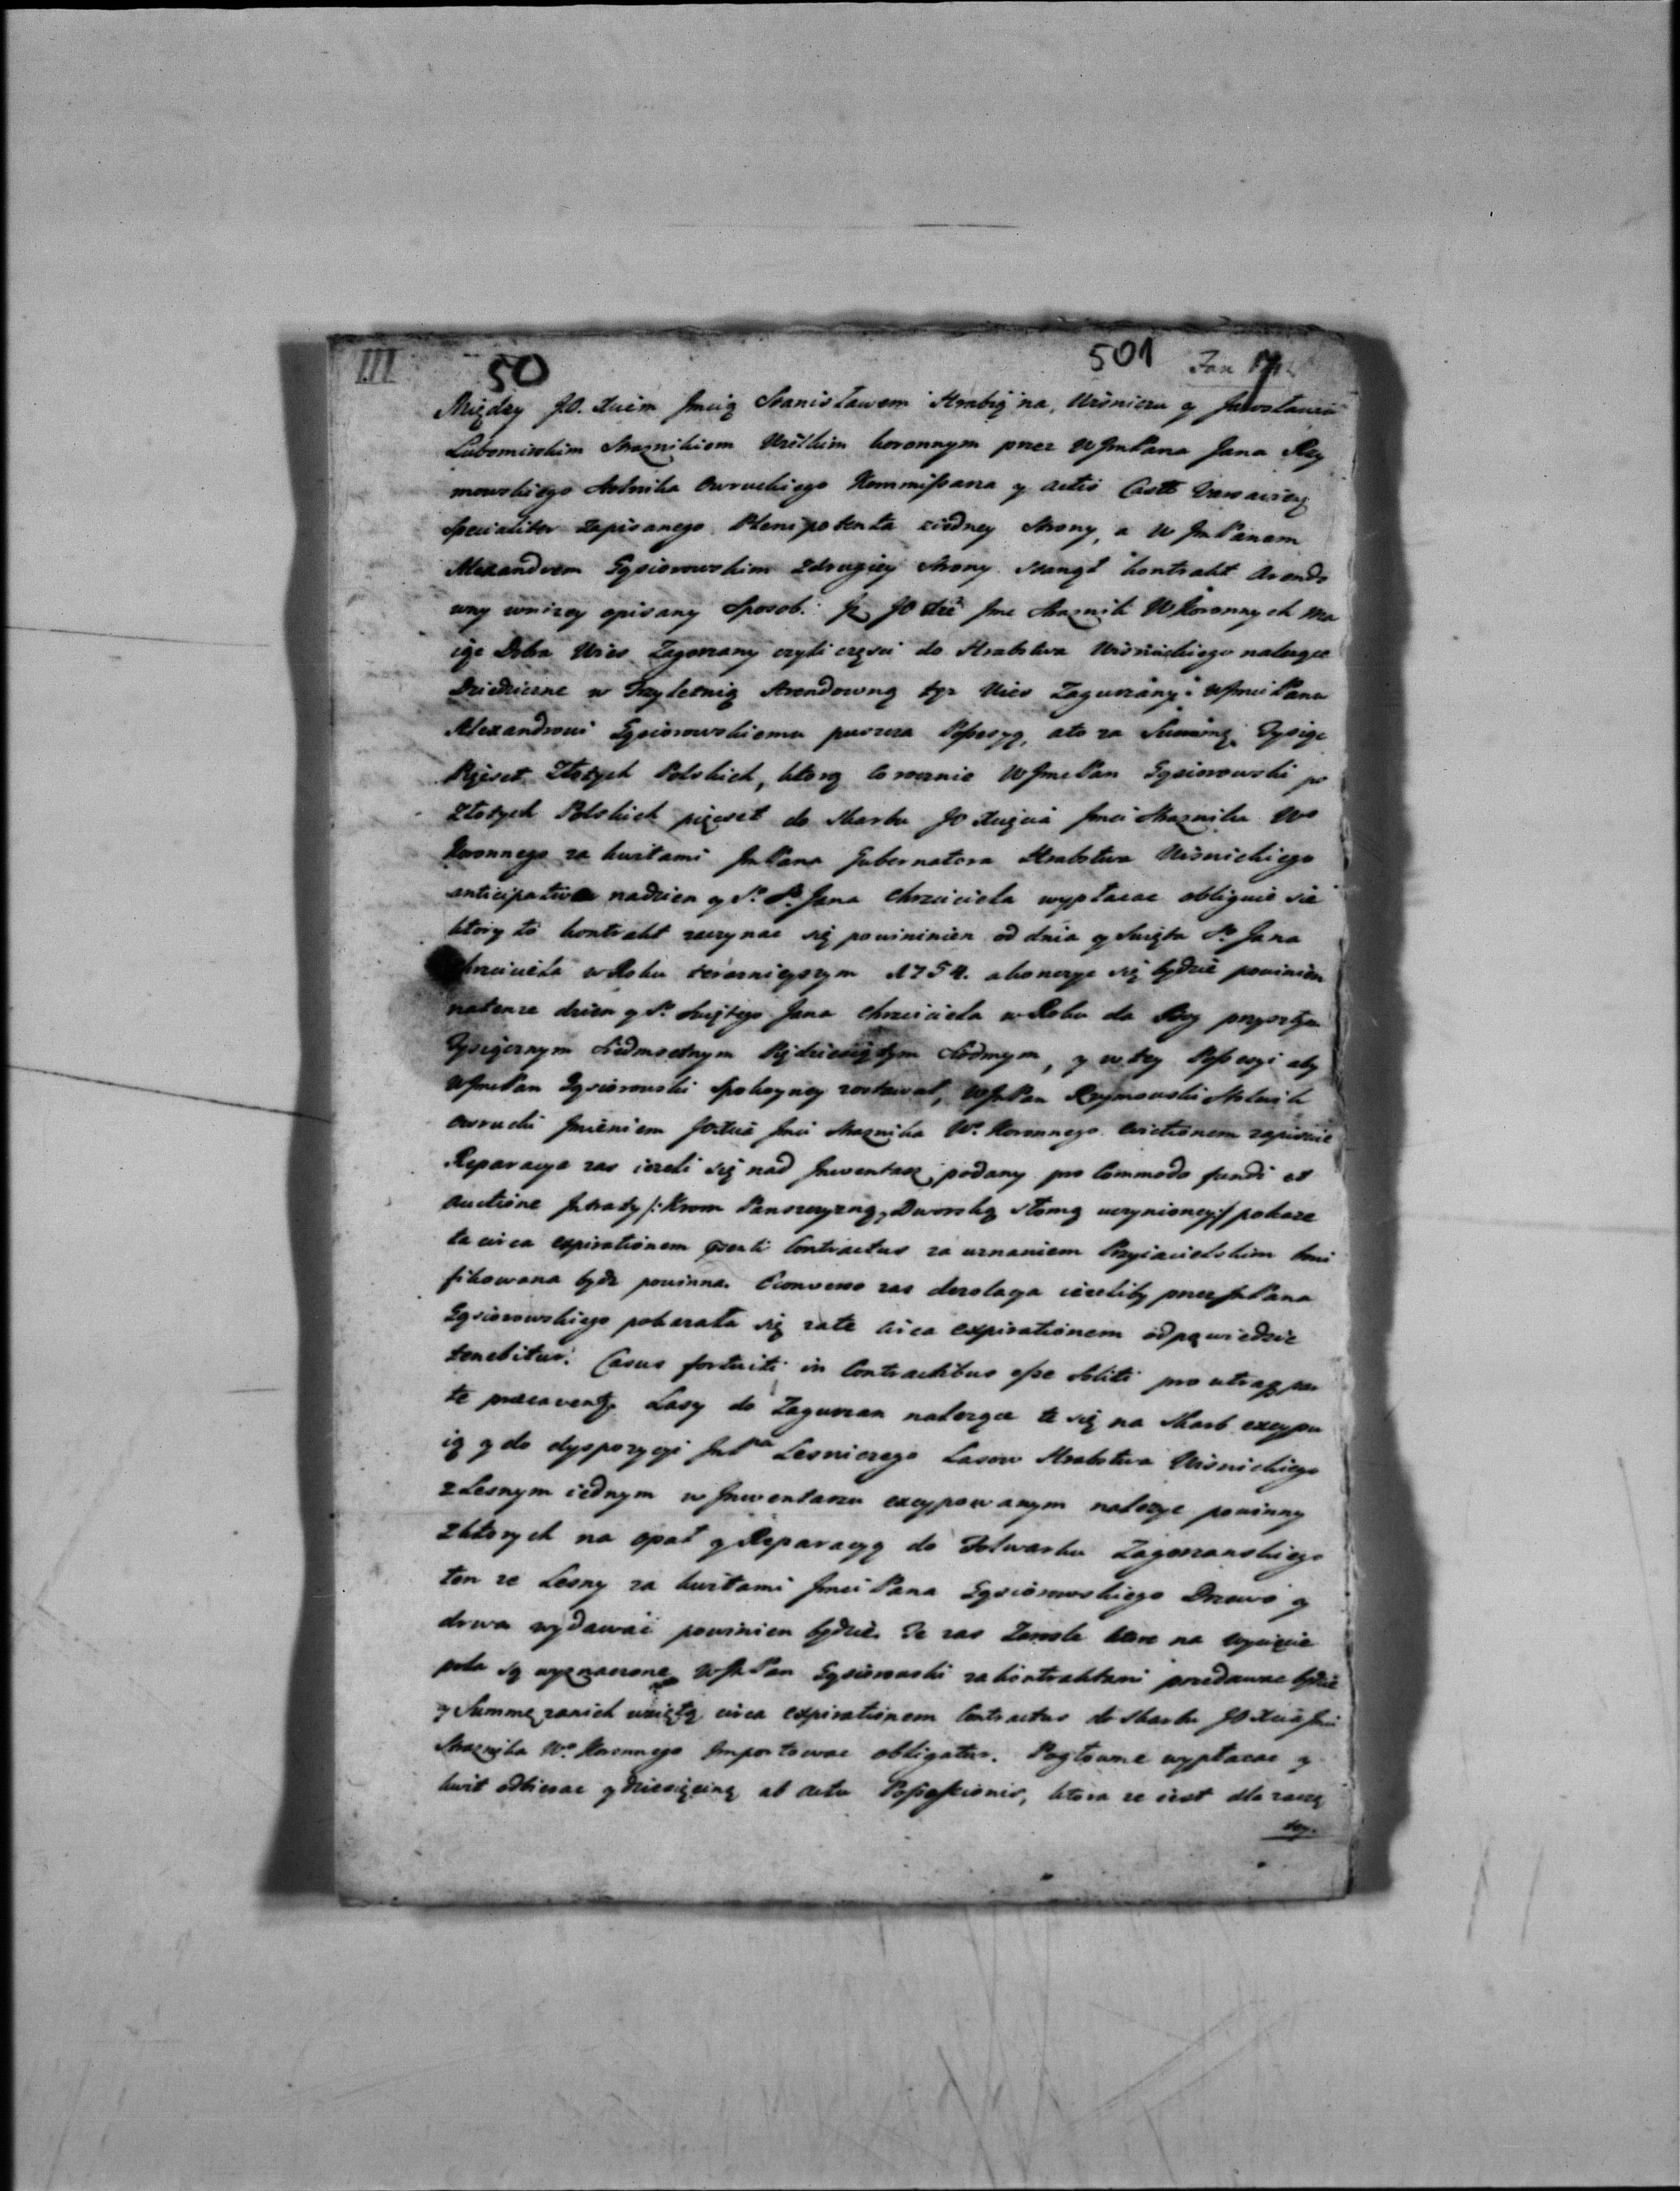 III 50 501 Fan
Między J.O. Xciem Jmcią Stanisławem Hrabią na Wiśniczu y Jarosławiu
Lubomirskim Strażnikiem Wielkim koronnym przez WJmPana Jana Rży
mowskiego Stolnika Owruckiego Kommissarza y actis Castr
specialiter zapisanego Plenipotenta ziedney strony, a W JmPanem
Alexandrem Gąsiorowskim zdrugiey strony stanął kontrakt Arendo
wny wniżey opisany sposob. Jż JO Xże Jmc Strażnik WKoronny ch ma
iąc Dobra Wieś Zagorzany czyli części do Hrabstwa Wiśnickiego należące
Dziedziczne w Trzyletnią Arendowną tyż Wieś Zagurzány WJmci Panu
Alexandrowi Gąsiorowskiemu puszcza Possesyą, ato za Summę Tysiąc
Pięset Złotych Polskich, którą corocznie WJmcPan Gąsiorowski po
Złotych Polskich pięcset do Skarbu JO Xiążęcia Jmci Strażnika Wo
Koronnego za kwitami JmPana Gubernatora Hrabstwa Wiśnickiego
anticipative nadzien y So So Jana Chrzciciela wypłacac obliguie sie
który to kontrakt zaczynac się powininien od dnia y Swięta So Jana
Chrzciciela w Roku teraznieyszym 1754. akonczyc się będzie powinien
natenze dzien y So Swiętego Jana Chrzciciela w Roku da Bog przyszłym
Tysiącznym Siedmsetnym Pięćdziesiątym Siodmym, y w tey Possesyi aby
WJmcPan Gąsiorowski spokoyney zostawał, WJmPan Rzymowski Stolnik
Owrucki Jmieniem JOXcia Jmci Strażnika Wo Koronnego evictionem zapisuie
Reparacya zas iezeli się nad Jnwentarz podany pro Commodo fundi et
auctione Jntraty /: Krom Panszczyzną, Dworską słomą uczynioney :/ pokaze
ta circa expirationem Contractus za uznaniem Przyiacielskim boni
fikowana bydz powinna. Econverso zas dezolacya iezeliby przez JmPana
Gąsiorowskiego pokazała się zate circa expirationem odpowiedziec
tenebitur. Casus fortuiti in Contractibus esse soliti pro utraq par
te praecaventur. Lasy do Zagurzan należące te się na Skarb excypu
ią y do dyspozycyi JmPna Lesniczego Lasow Hrabstwa Wiśnickiego
z Lesnym iednym w Jnwentarzu excypowanym nalezyc powinny
z których na opał y Reparacyą do Folwarku Zagorzanskiego
ten ze Lesny za kwitami Jmci Pana Gąsiorowskiego Drzewo y
drwa wydawac powinien będzie. Ze zas Zarosle ktore na wycięcie
pola są wyznaczone WJmPan Gąsiorowski za kontraktami przedawac będzie
y Summę zanich wziętą circa expirationem Contractus do Skarbu JO Xcia Jmci
Strażnika Wo Koronnego Jmportowac obligatur. Pogłowne wypłacac y
kwit odbierac y dziesięcinę ab actu Possessionis, ktora ze iest dla